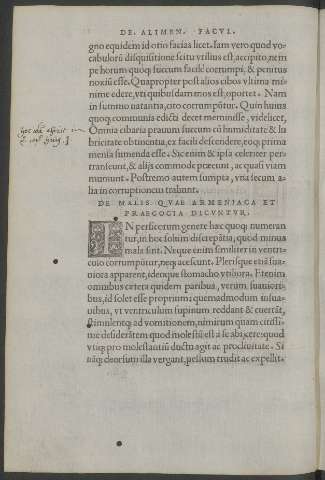 DE. ALIMEN. FACVL.
gno equidem id otio facias licet. Iam vero quod vo-
cabulorũ disquisitione scitu vtilius est, accipito, nem
pe horum quoq; succum facile corrumpi, & penitus
noxiũ esse. Quapropter post alios cibos vltima mi-
nime edere, vti quibusdam mos est, oportet. Nam
in summo natantia, cito corrumpũtur. Quin huius
quoq; communis edicti decet meminisse, videlicet,
Omnia cibaria prauum succum cũ humiditate & lu
bricitate obtinentia, ex facili descendere, eoq; prima
mensa sumenda esse. Sic enim & ipsa celeriter per-
transeunt, & alijs commode præeunt, ac quasi viam
muniunt. Postremo autem sumpta, vna secum a-
lia in corruptionem trahunt.
DE MALIS QVAE ARMENIACA ET
PRAECOCIA DICVNTVR.
IN persicorum genere hæc quoq; numeran
tur, in hoc solum discrepãtia, quod minus
mala sint. Neque enim similiter in ventri-
culo corrumpũtur, neq; acescunt. Plerisque etiã sua-
uiora apparent, ideoque stomacho vtiliora. Etenim
omnibus cætera quidem paribus, verum suauiori-
bus, id solet esse proprium: quemadmodum insua-
uibus, vt ventriculum supinum reddant & euersũ,
stimulentq; ad vomitionem, nimirum quam citissi-
me desiderãtem quod molestũ est a se abijcere: quod
vtiq; pro molestantiũ ductu agit ac procliuitate. Si
náq; deorsum illa vergant, pessum trudit ac expellit.